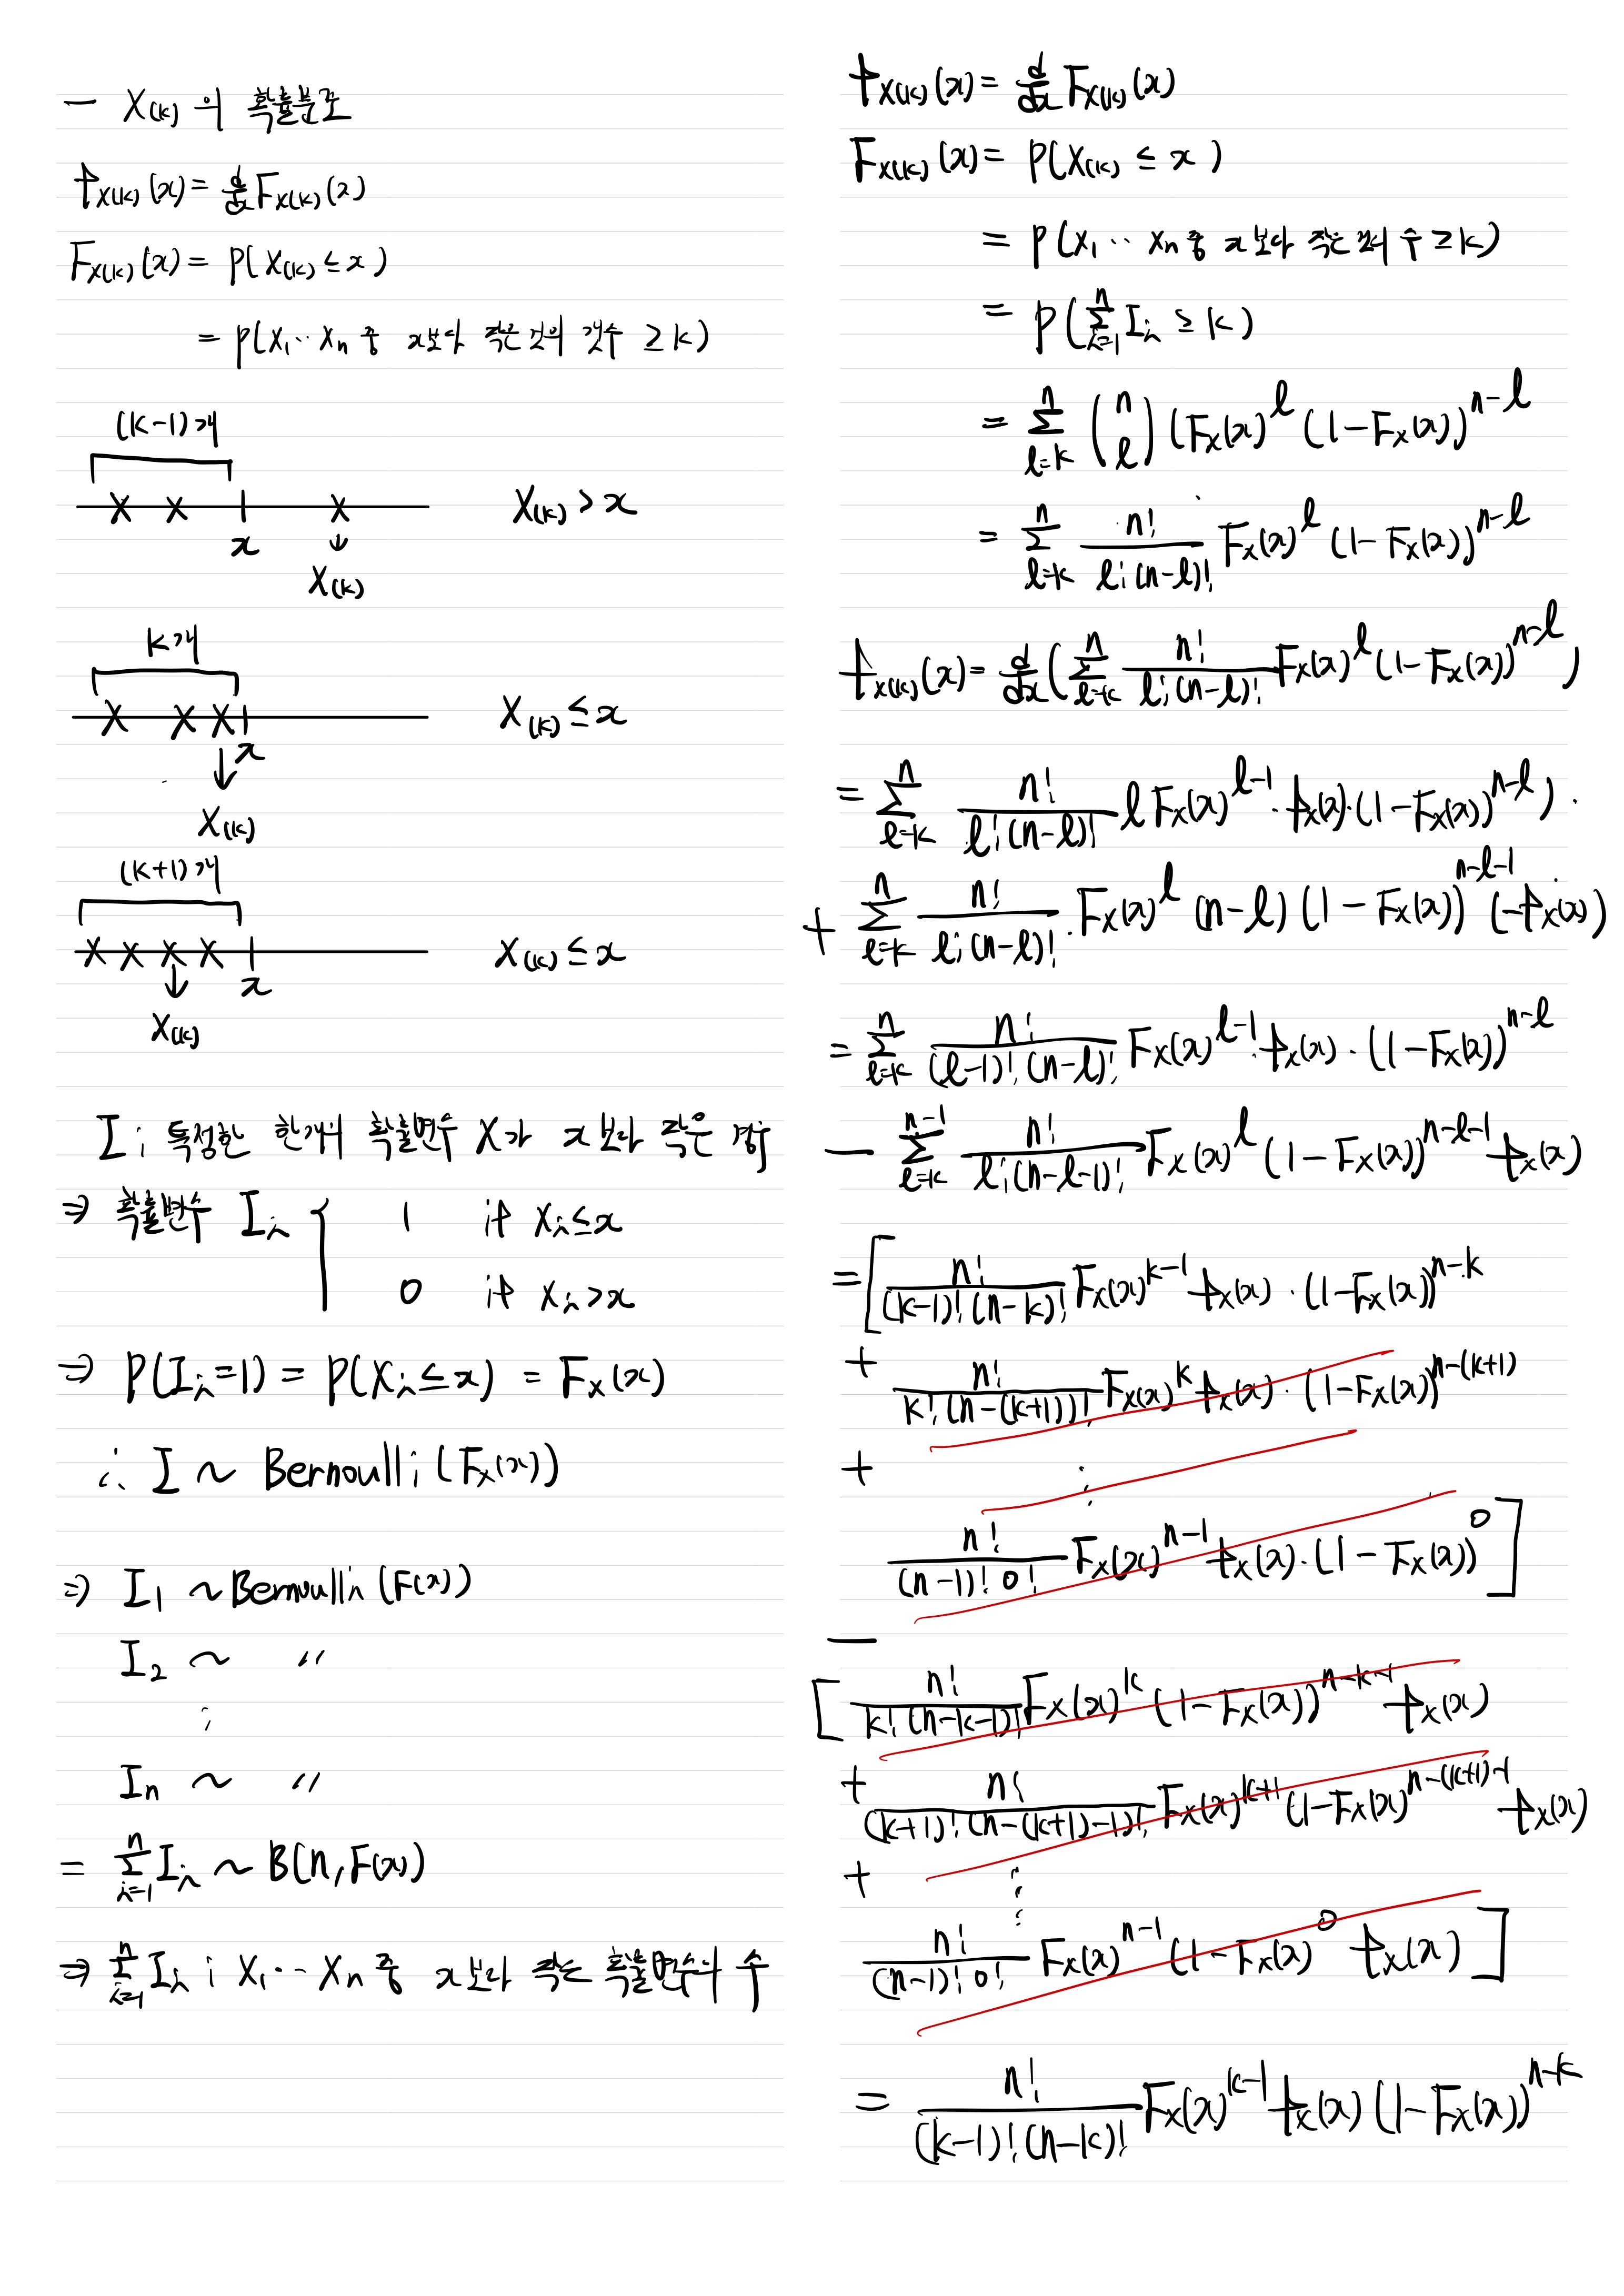 - X(k) 의 확률분포
f_X(k) (x) = d/dx F_X(k) (x)
F_X(k) (x) = P(X(k) ≤ x)
= P(X₁ ·· Xₙ 중 x보다 작은 것의 갯수 ≥ k)
(k-1)개
x
X(k)
X(k) > x
k개
x
X(k)
X(k) ≤ x
(k+1)개
x
X(k)
X(k) ≤ x
I ; 특정한 한개의 확률변수 X가 x보다 작은 경우
⇒ 확률변수 Iᵢ { 1 if Xᵢ ≤ x
0 if Xᵢ > x
⇒ P(Iᵢ=1) = P(Xᵢ ≤ x) = F_X(x)
∴ I ~ Bernoulli (F_X(x))
⇒ I₁ ~ Bernoulli (F(x))
I₂ ~ 〃
⋮
Iₙ ~ 〃
= Σ_{i=1}^{n} Iᵢ ~ B(n, F(x))
⇒ Σ_{i=1}^{n} Iᵢ ; X₁ ·· Xₙ 중 x보다 작은 확률변수의 수
f_X(k) (x) = d/dx F_X(k) (x)
F_X(k) (x) = P(X(k) ≤ x)
= P(X₁ ·· Xₙ 중 x보다 작은 것의 수 ≥ k)
= P(Σ_{i=1}^{n} Iᵢ ≥ k)
= Σ_{l=k}^{n} (n l) (F_X(x)^l (1-F_X(x))^{n-l}
= Σ_{l=k}^{n} n!/(l!(n-l)!) F_X(x)^l (1-F_X(x))^{n-l}
f_X(k) (x) = d/dx (Σ_{l=k}^{n} n!/(l!(n-l)!) F_X(x)^l (1-F_X(x))^{n-l})
= Σ_{l=k}^{n} n!/(l!(n-l)!) l F_X(x)^{l-1} · f_X(x) · (1-F_X(x))^{n-l}) ·
+ Σ_{l=k}^{n} n!/(l!(n-l)!) · F_X(x)^l (n-l) (1-F_X(x))^{n-l-1} (-f_X(x))
= Σ_{l=k}^{n} n!/((l-1)!(n-l)!) F_X(x)^{l-1} · f_X(x) · (1-F_X(x))^{n-l}
- Σ_{l=k}^{n-1} n!/(l!(n-l-1)!) F_X(x)^l (1-F_X(x))^{n-l-1} f_X(x)
= [n!/((k-1)!(n-k)!) F_X(x)^{k-1} f_X(x) · (1-F_X(x))^{n-k}
+ n!/(k!(n-(k+1))!) F_X(x)^k f_X(x) · (1-F_X(x))^{n-(k+1)}
+ ⋮
n!/((n-1)! 0!) F_X(x)^{n-1} f_X(x) · (1-F_X(x))^0 ]
-
[ n!/(k!(n-k-1)!) F_X(x)^k (1-F_X(x))^{n-k-1} f_X(x)
+ n!/((k+1)!(n-(k+1)-1)!) F_X(x)^{k+1} (1-F_X(x))^{n-(k+1)-1} f_X(x)
+ ⋮
n!/((n-1)! 0!) F_X(x)^{n-1} (1-F_X(x)^0 f_X(x) ]
= n!/((k-1)!(n-k)!) F_X(x)^{k-1} f_X(x) (1-F_X(x))^{n-k}